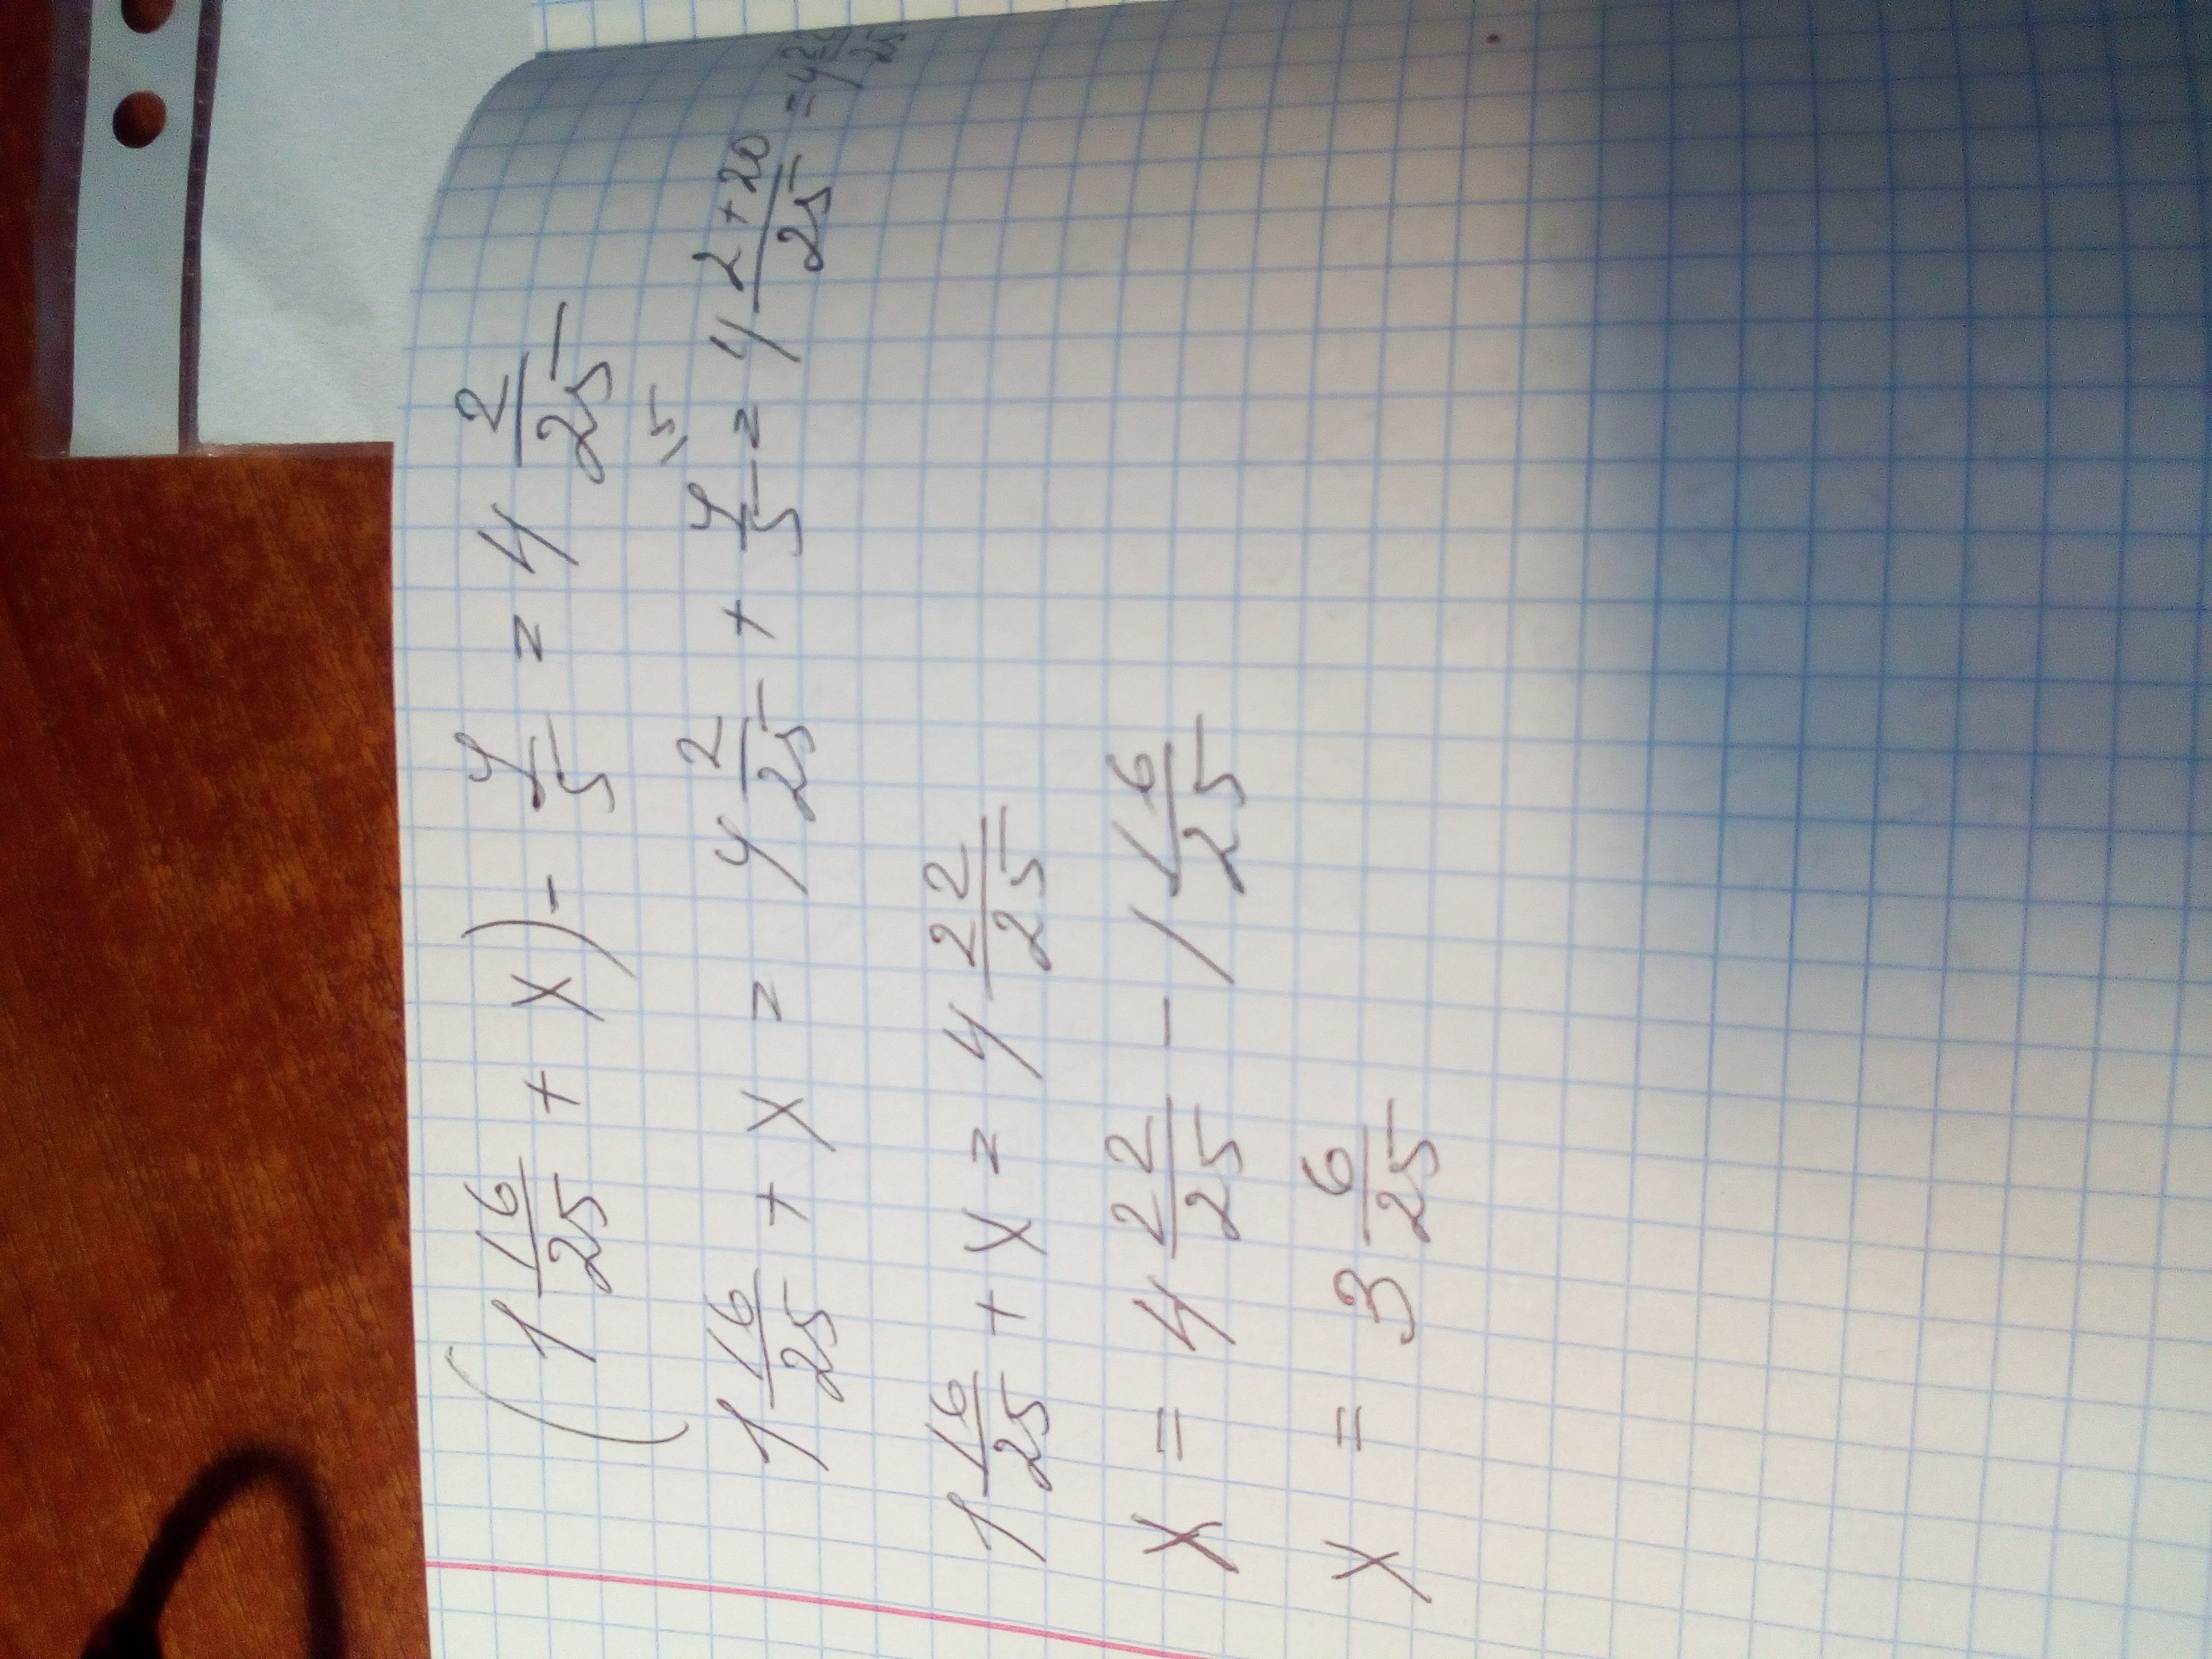 (1 16/25 + x) - 4/5 = 4 2/25
1 16/25 + x = 4 2/25 + 4/5 \5 = 4 2+20/25 = 4 22/25
1 16/25 + x = 4 22/25
x = 4 22/25 - 1 16/25
x = 3 6/25